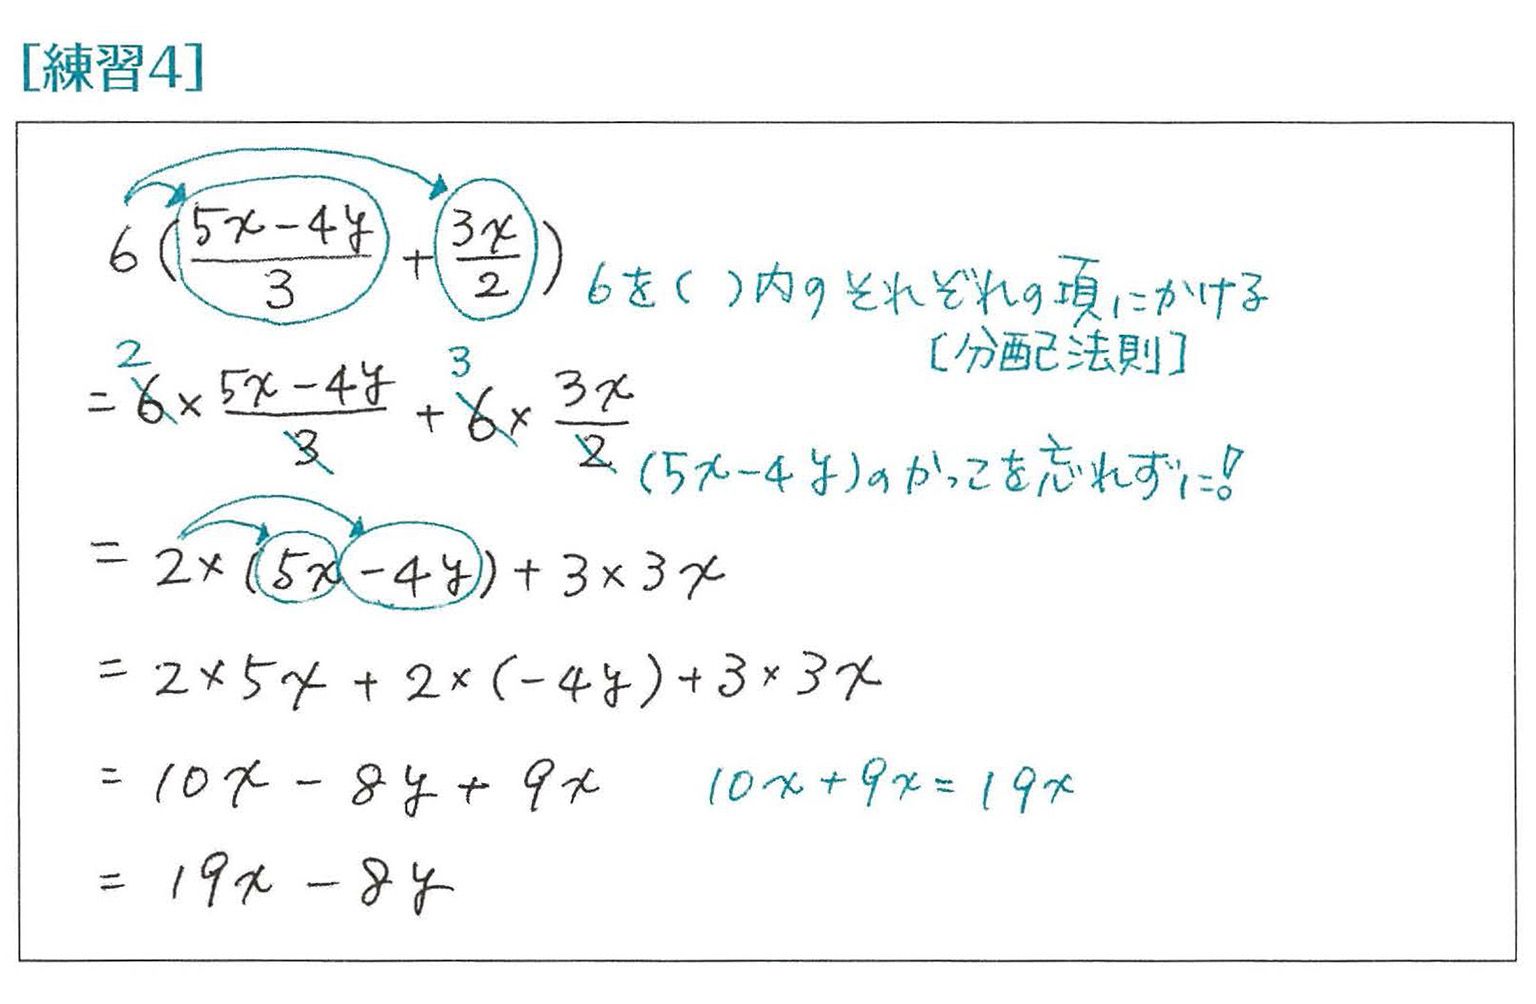 [練習4]
6(\frac{5x-4y}{3}+\frac{3x}{2}) 6を( )内のそれぞれの項にかける
[分配法則]
2 3
=6×\frac{5x-4y}{3}+6×\frac{3x}{2}
(5x-4y)のかっこを忘れずに!
=2×(5x-4y)+3×3x
=2×5x+2×(-4y)+3×3x
=10x-8y+9x 10x+9x=19x
=19x-8y